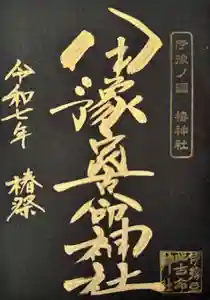 伊豫ノ国 椿神社
伊豫豆比古命神社
令和七年 椿祭